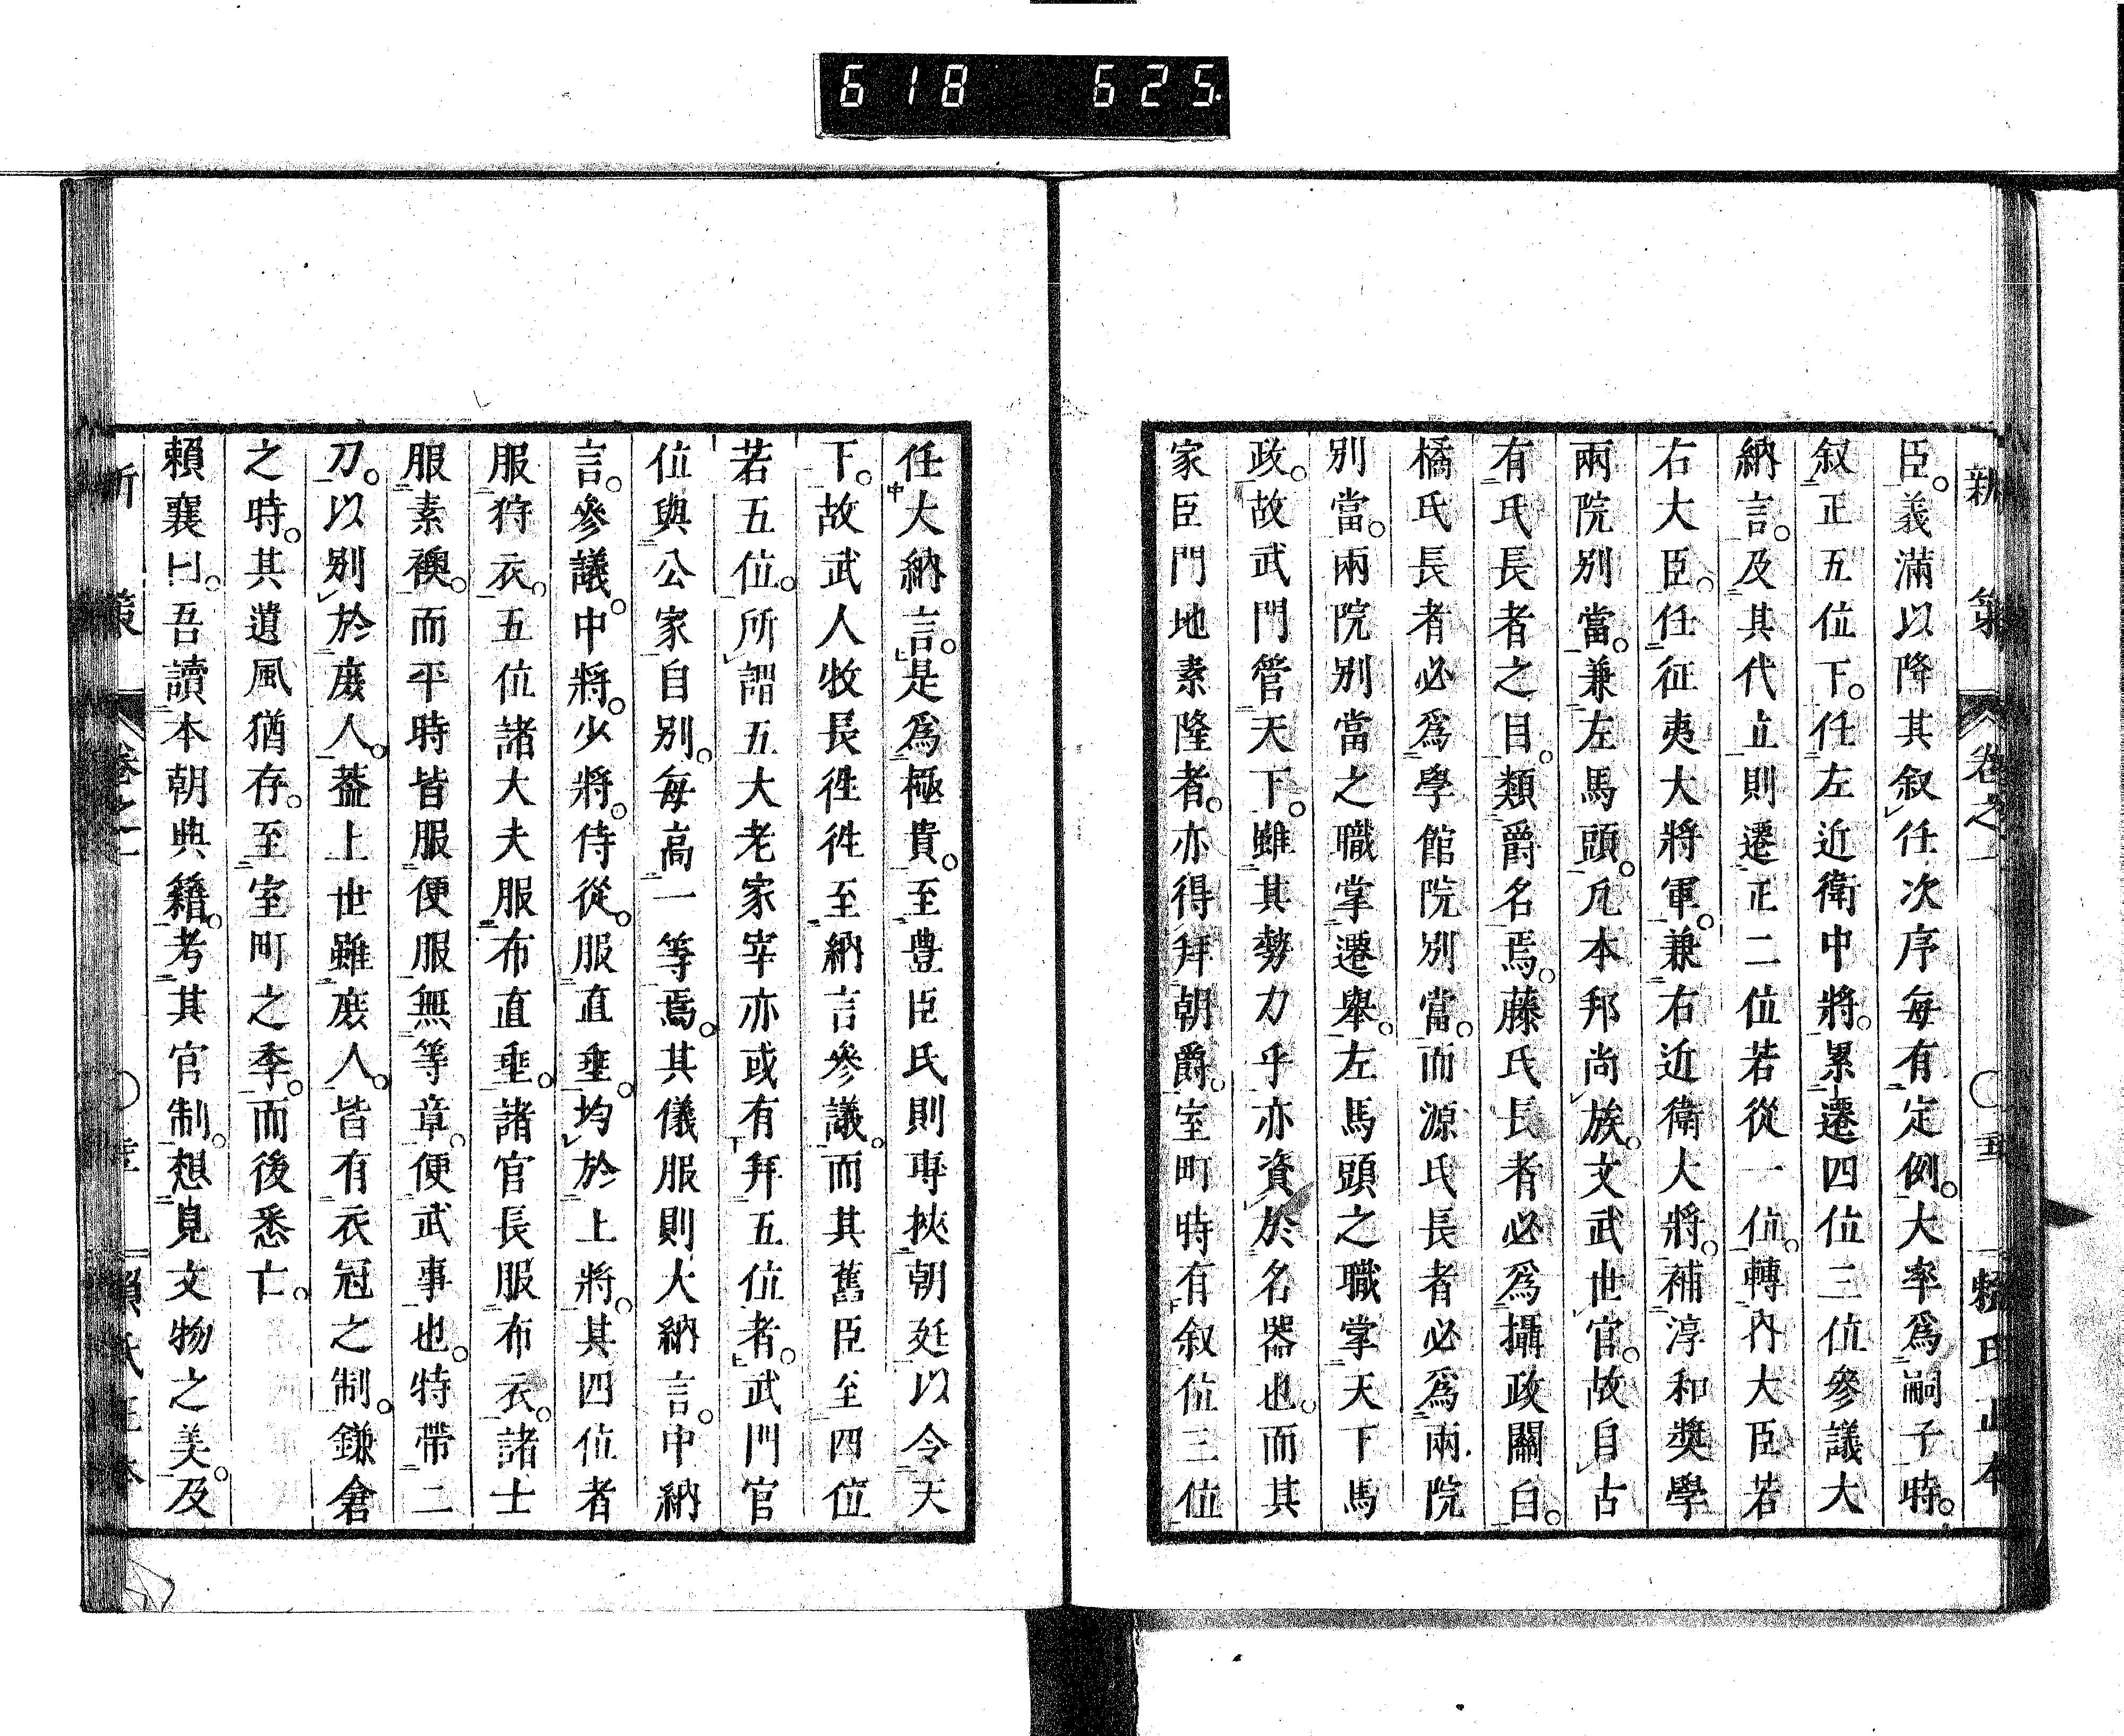 618 625
新策 卷之一 賴氏正本
臣。義滿以降其叙任次序每有定例。大率爲嗣子時。
叙正五位下。任左近衛中將。累遷四位三位參議大
納言。及其代立則遷正二位若從一位。轉內大臣若
右大臣。任征夷大將軍。兼右近衛大將。補淳和奬學
兩院別當。兼左馬頭。凡本邦尚族。文武世官。故自古
有氏長者之目。類爵名焉。藤氏長者必爲攝政關白。
橘氏長者必爲學館院別當。而源氏長者必爲兩院
別當。兩院別當之職掌遷舉。左馬頭之職掌天下馬
政。故武門管天下。雖其勢力乎亦資於名器也。而其
家臣門地素隆者。亦得拜朝爵。室町時有叙位三位
任大納言。是爲極貴。至豊臣氏則專挾朝廷以令天
下。故武人牧長徃徃至納言參議。而其舊臣至四位
若五位。所謂五大老家宰亦或有拜五位者。武門官
位與公家自別。每高一等焉。其儀服則大納言。中納
言。參議。中將。少將。侍從。服直垂。均於上將。其四位者
服狩衣。五位諸大夫服布直垂。諸官長服布衣。諸士
服素襖。而平時皆服便服無等章。便武事也。特帶二
刀。以別於庶人。葢上世雖庶人。皆有衣冠之制。鎌倉
之時。其遺風猶存。至室町之季。而後悉亡。
賴襄曰。吾讀本朝典籍。考其官制。想見文物之美。及